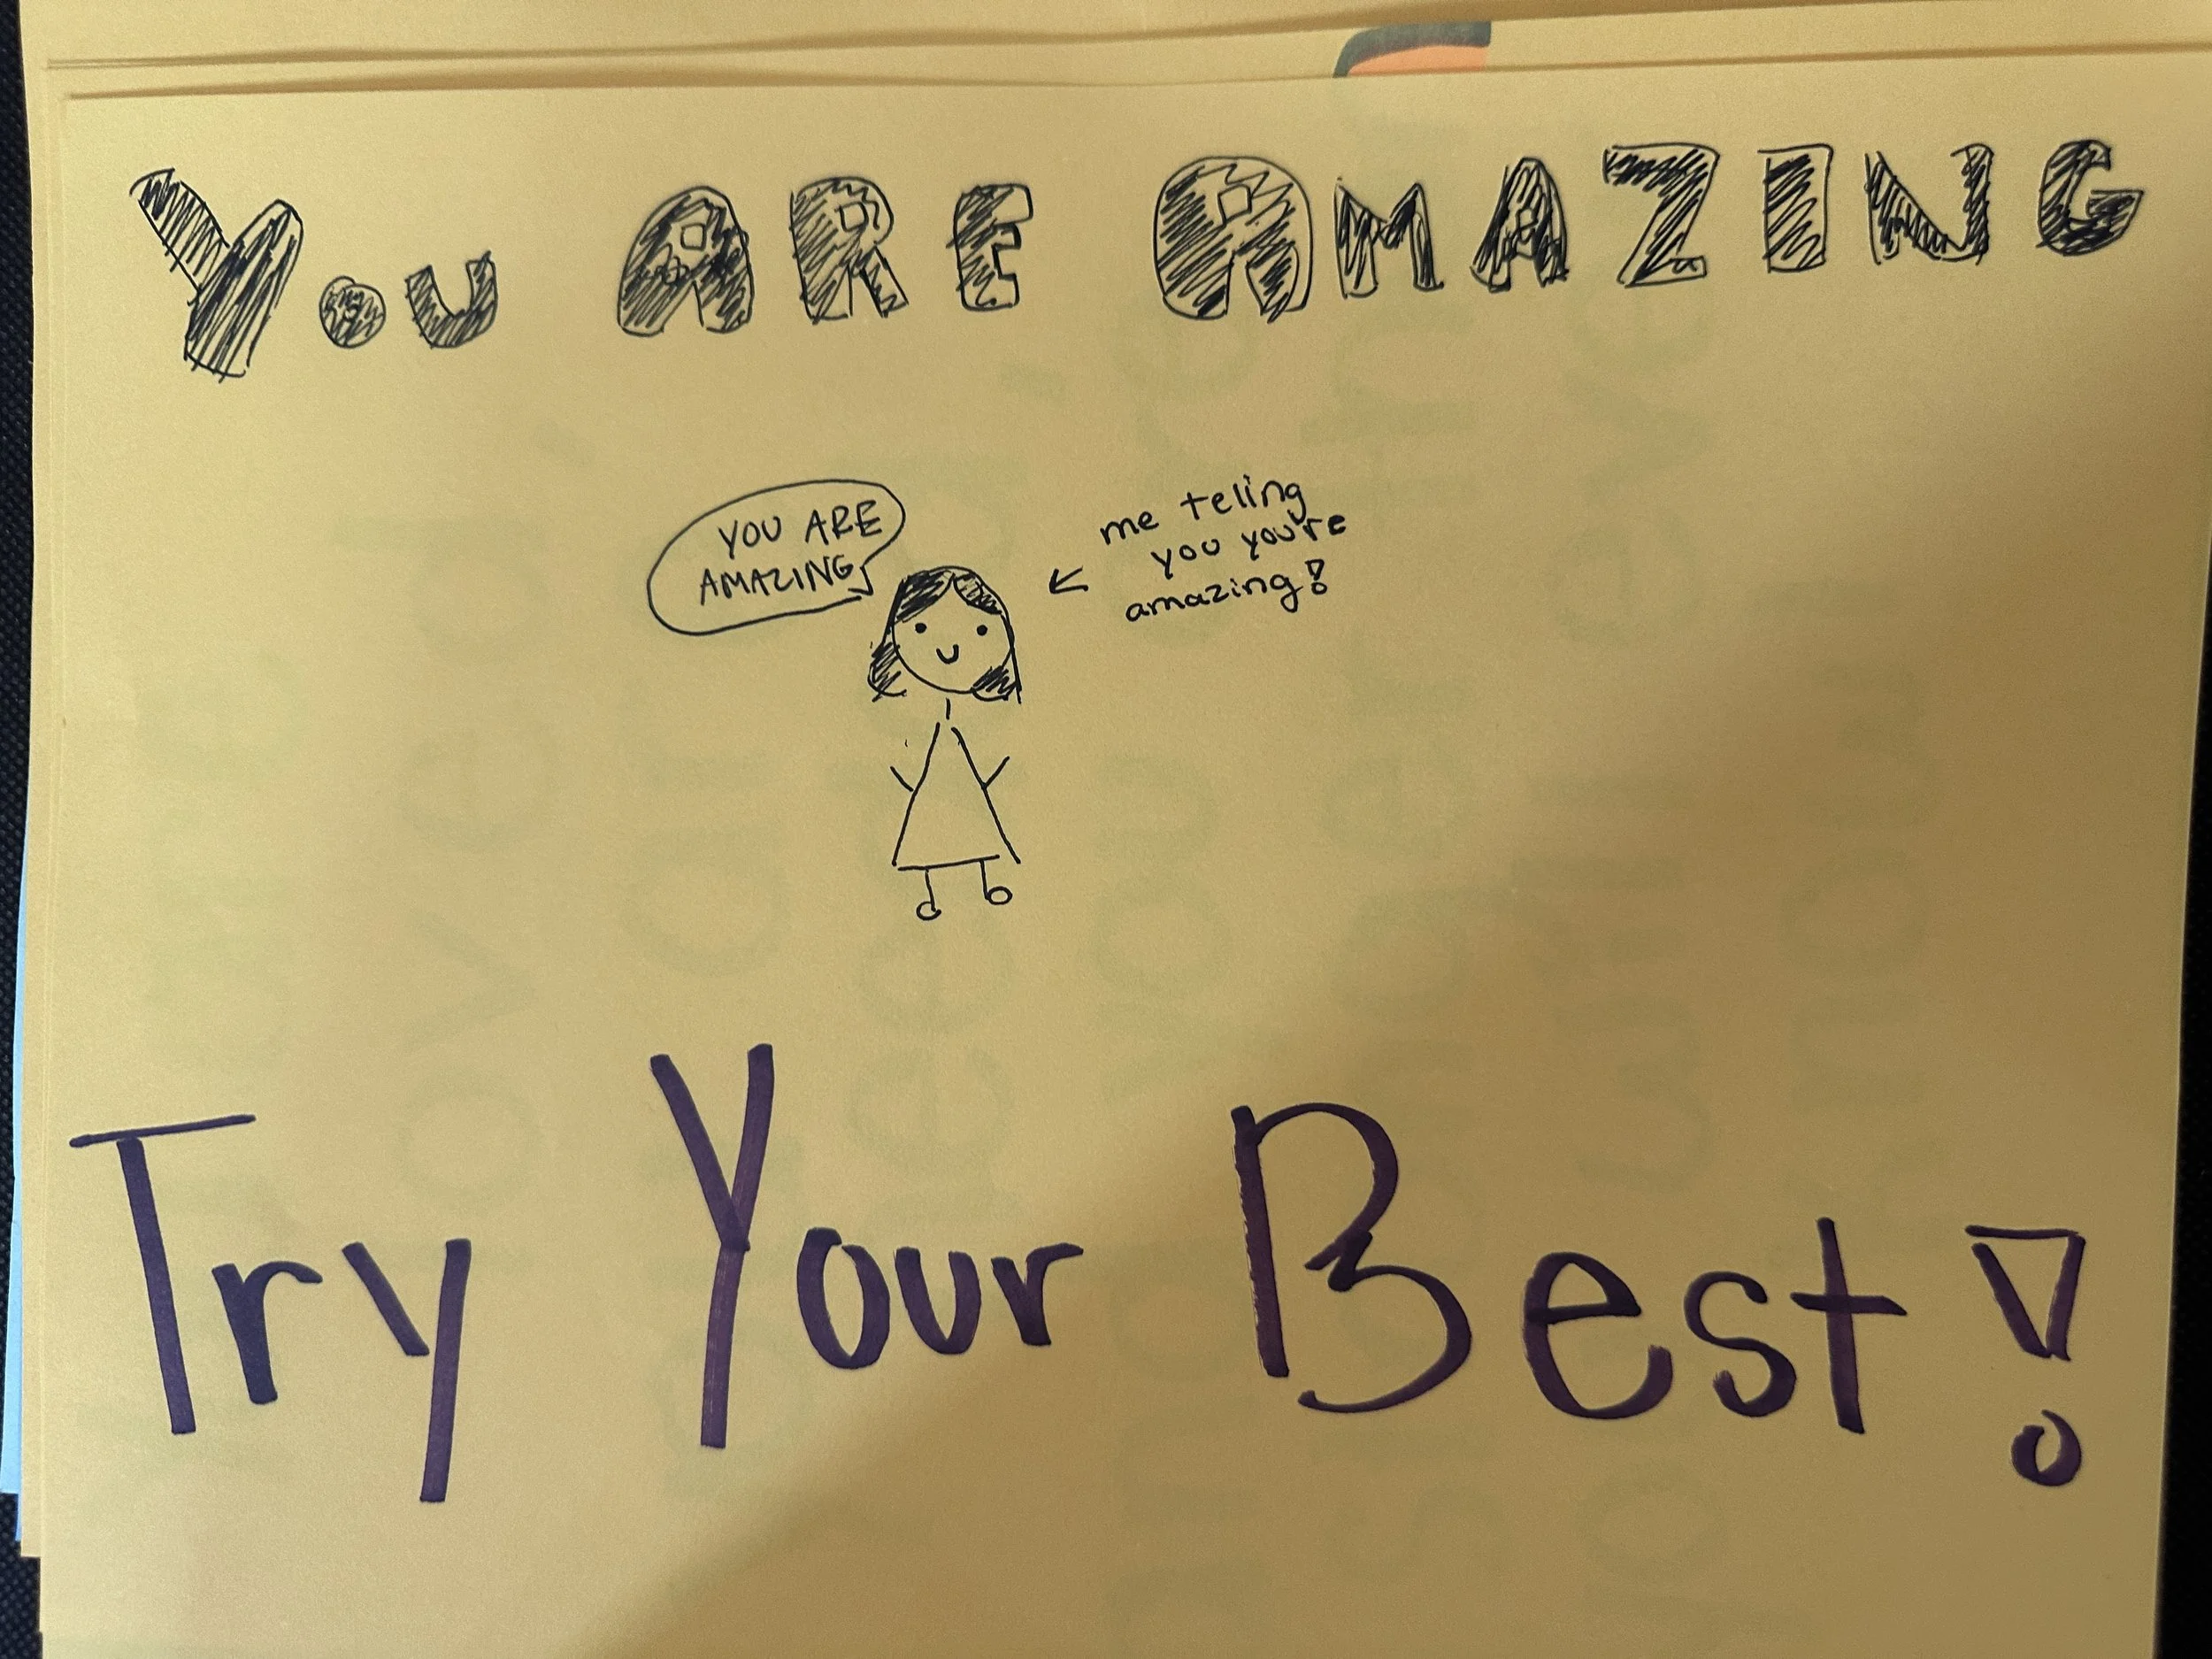 You ARE AMAZING
YOU ARE
AMAZING
me teling
you you're
amazing!
Try Your Best!